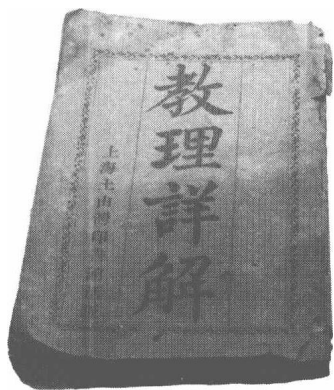 教理詳解
上海土山灣印